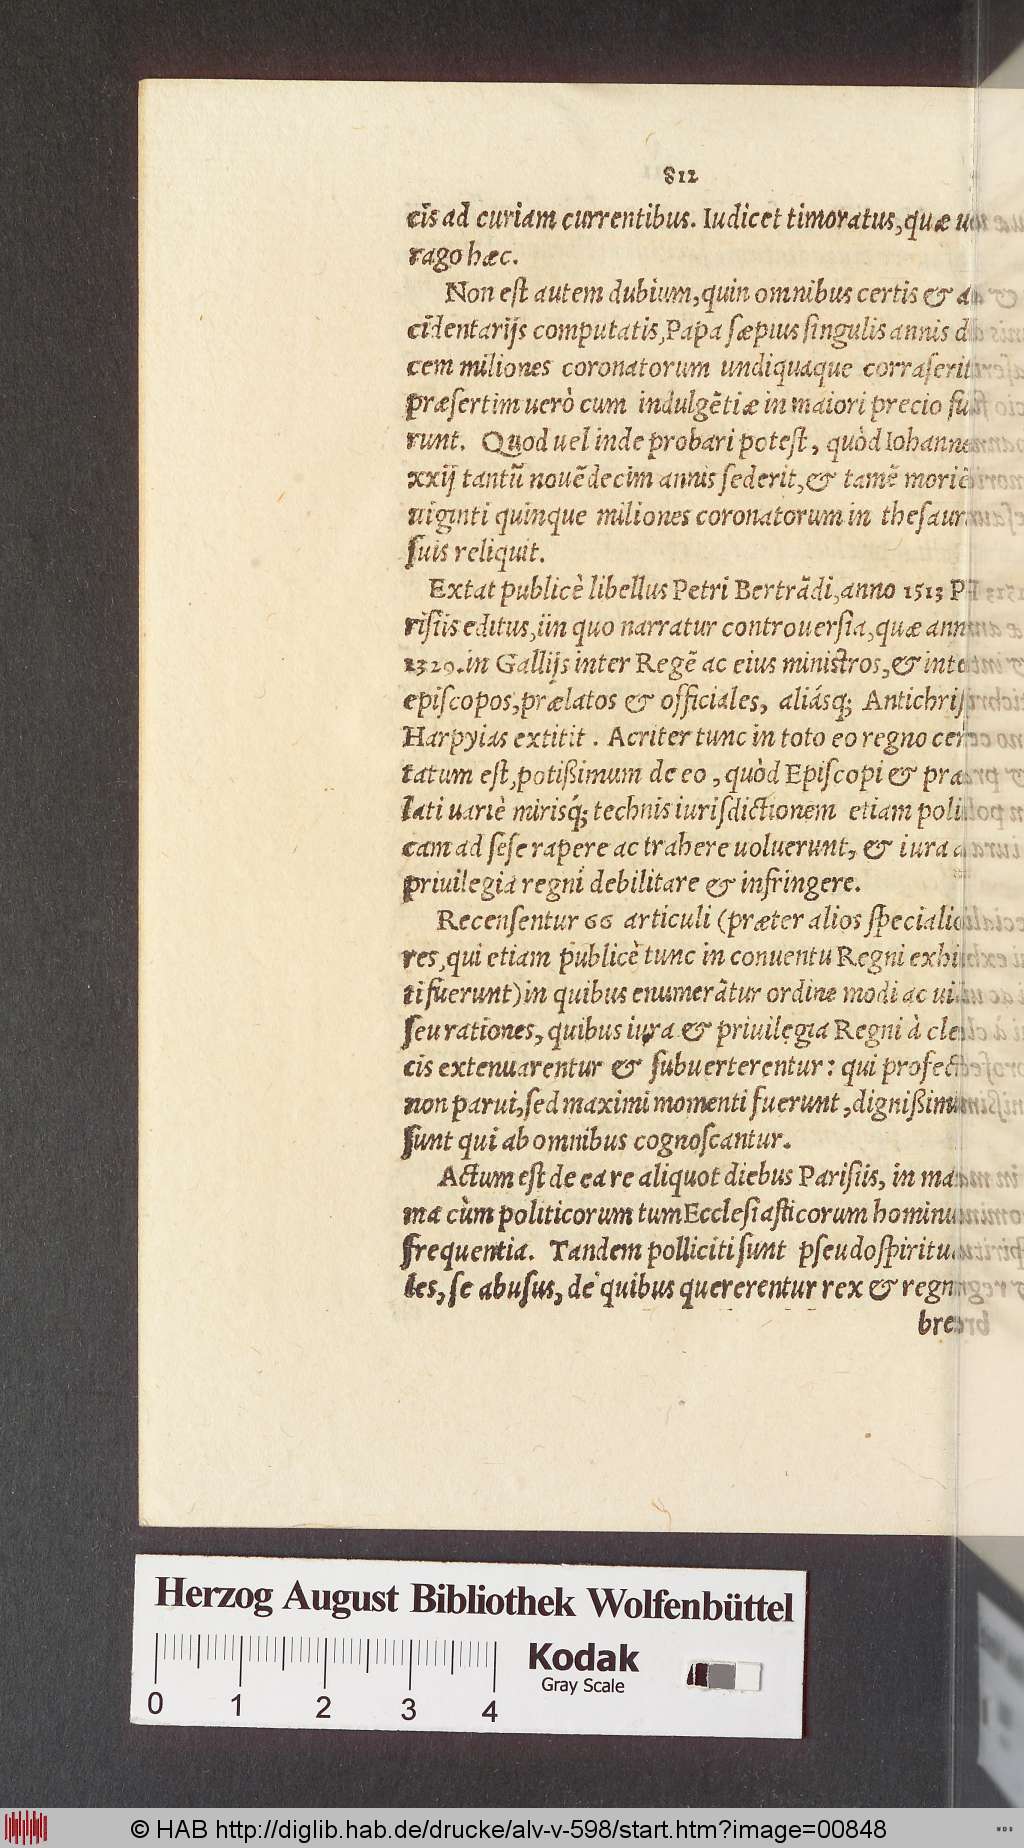 812
cis ad curiam currentibus. Iudicet timoratus, quæ
rago hæc.
Non est autem dubium, quin omnibus certis & a
cidentarijs computatis, Papa sæpius singulis annis d
cem miliones coronatorum undiquaque corraserit
præsertim uerò cum indulgẽtiæ in maiori precio fu
runt. Quod uel inde probari potest, quòd Iohanne
xxij tantũ nouẽdecim annis sederit, & tamẽ moriẽ
uiginti quinque miliones coronatorum in thesaur
suis reliquit.
Extat publicè libellus Petri Bertrãdi, anno 1513 P
risiis editus, iin quo narratur controuersia, quæ ann
1329. in Gallijs inter Regẽ ac eius ministros, & inte
episcopos, prælatos & officiales, aliásq; Antichris
Harpyias extitit. Acriter tunc in toto eo regno cer
tatum est, potißimum de eo, quòd Episcopi & præ
lati uariè mirisq́; technis iurisdictionem etiam poli
cam ad sese rapere ac trahere uoluerunt, & iura a
priuilegia regni debilitare & infringere.
Recensentur 66 articuli (præter alios speciali
res, qui etiam publicè tunc in conuentu Regni exhi
ti fuerunt) in quibus enumerãtur ordine modi ac ui
seu rationes, quibus iura & priuilegia Regni à cle
cis extenuarentur & subuerterentur: qui profect
non parui, sed maximi momenti fuerunt, dignißim
sunt qui ab omnibus cognoscantur.
Actum est de ea re aliquot diebus Parisiis, in ma
ma cùm politicorum tum Ecclesiasticorum hominu
frequentia. Tandem polliciti sunt pseudospiritu
les, se abusus, de quibus quererentur rex & regn
bre
Herzog August Bibliothek Wolfenbüttel
Kodak
Gray Scale
0 1 2 3 4
© HAB http://diglib.hab.de/drucke/alv-v-598/start.htm?image=00848